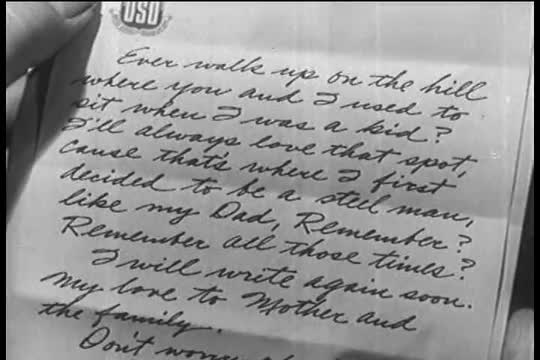 USO
Ever walk up on the hill
where you and I used to
sit when I was a kid?
I'll always love that spot,
cause that's where I first
decided to be a steel man,
like my Dad, Remember?
Remember all those times?
I will write again soon.
My love to Mother and
the family.
Don't worry